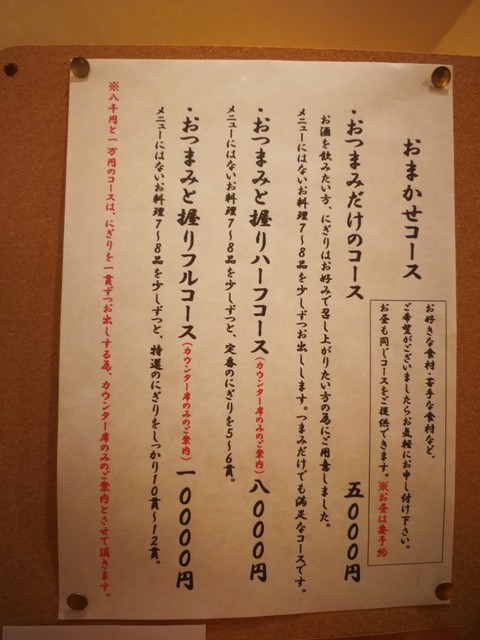 おまかせコース
お好きな食材・苦手な食材など、
ご希望がございましたらお気軽にお申し付け下さい。
お昼も同じコースをご提供できます。※お昼は要予約
・おつまみだけのコース 五000円
お酒を飲みたい方、にぎりはお好みで召し上がりたい方の為にご用意しました。
メニューにはないお料理7〜8品を少しずつお出しします。つまみだけでも満足なコースです。
・おつまみと握りハーフコース(カウンター席のみのご案内) 八000円
メニューにはないお料理7〜8品を少しずつと、定番のにぎりを5〜6貫。
・おつまみと握りフルコース(カウンター席のみのご案内) 一0000円
メニューにはないお料理7〜8品を少しずつと、特選のにぎりをしっかり10貫〜12貫。
※八千円と一万円のコースは、にぎりを一貫ずつお出しする為、カウンター席のみのご案内とさせて頂きます。